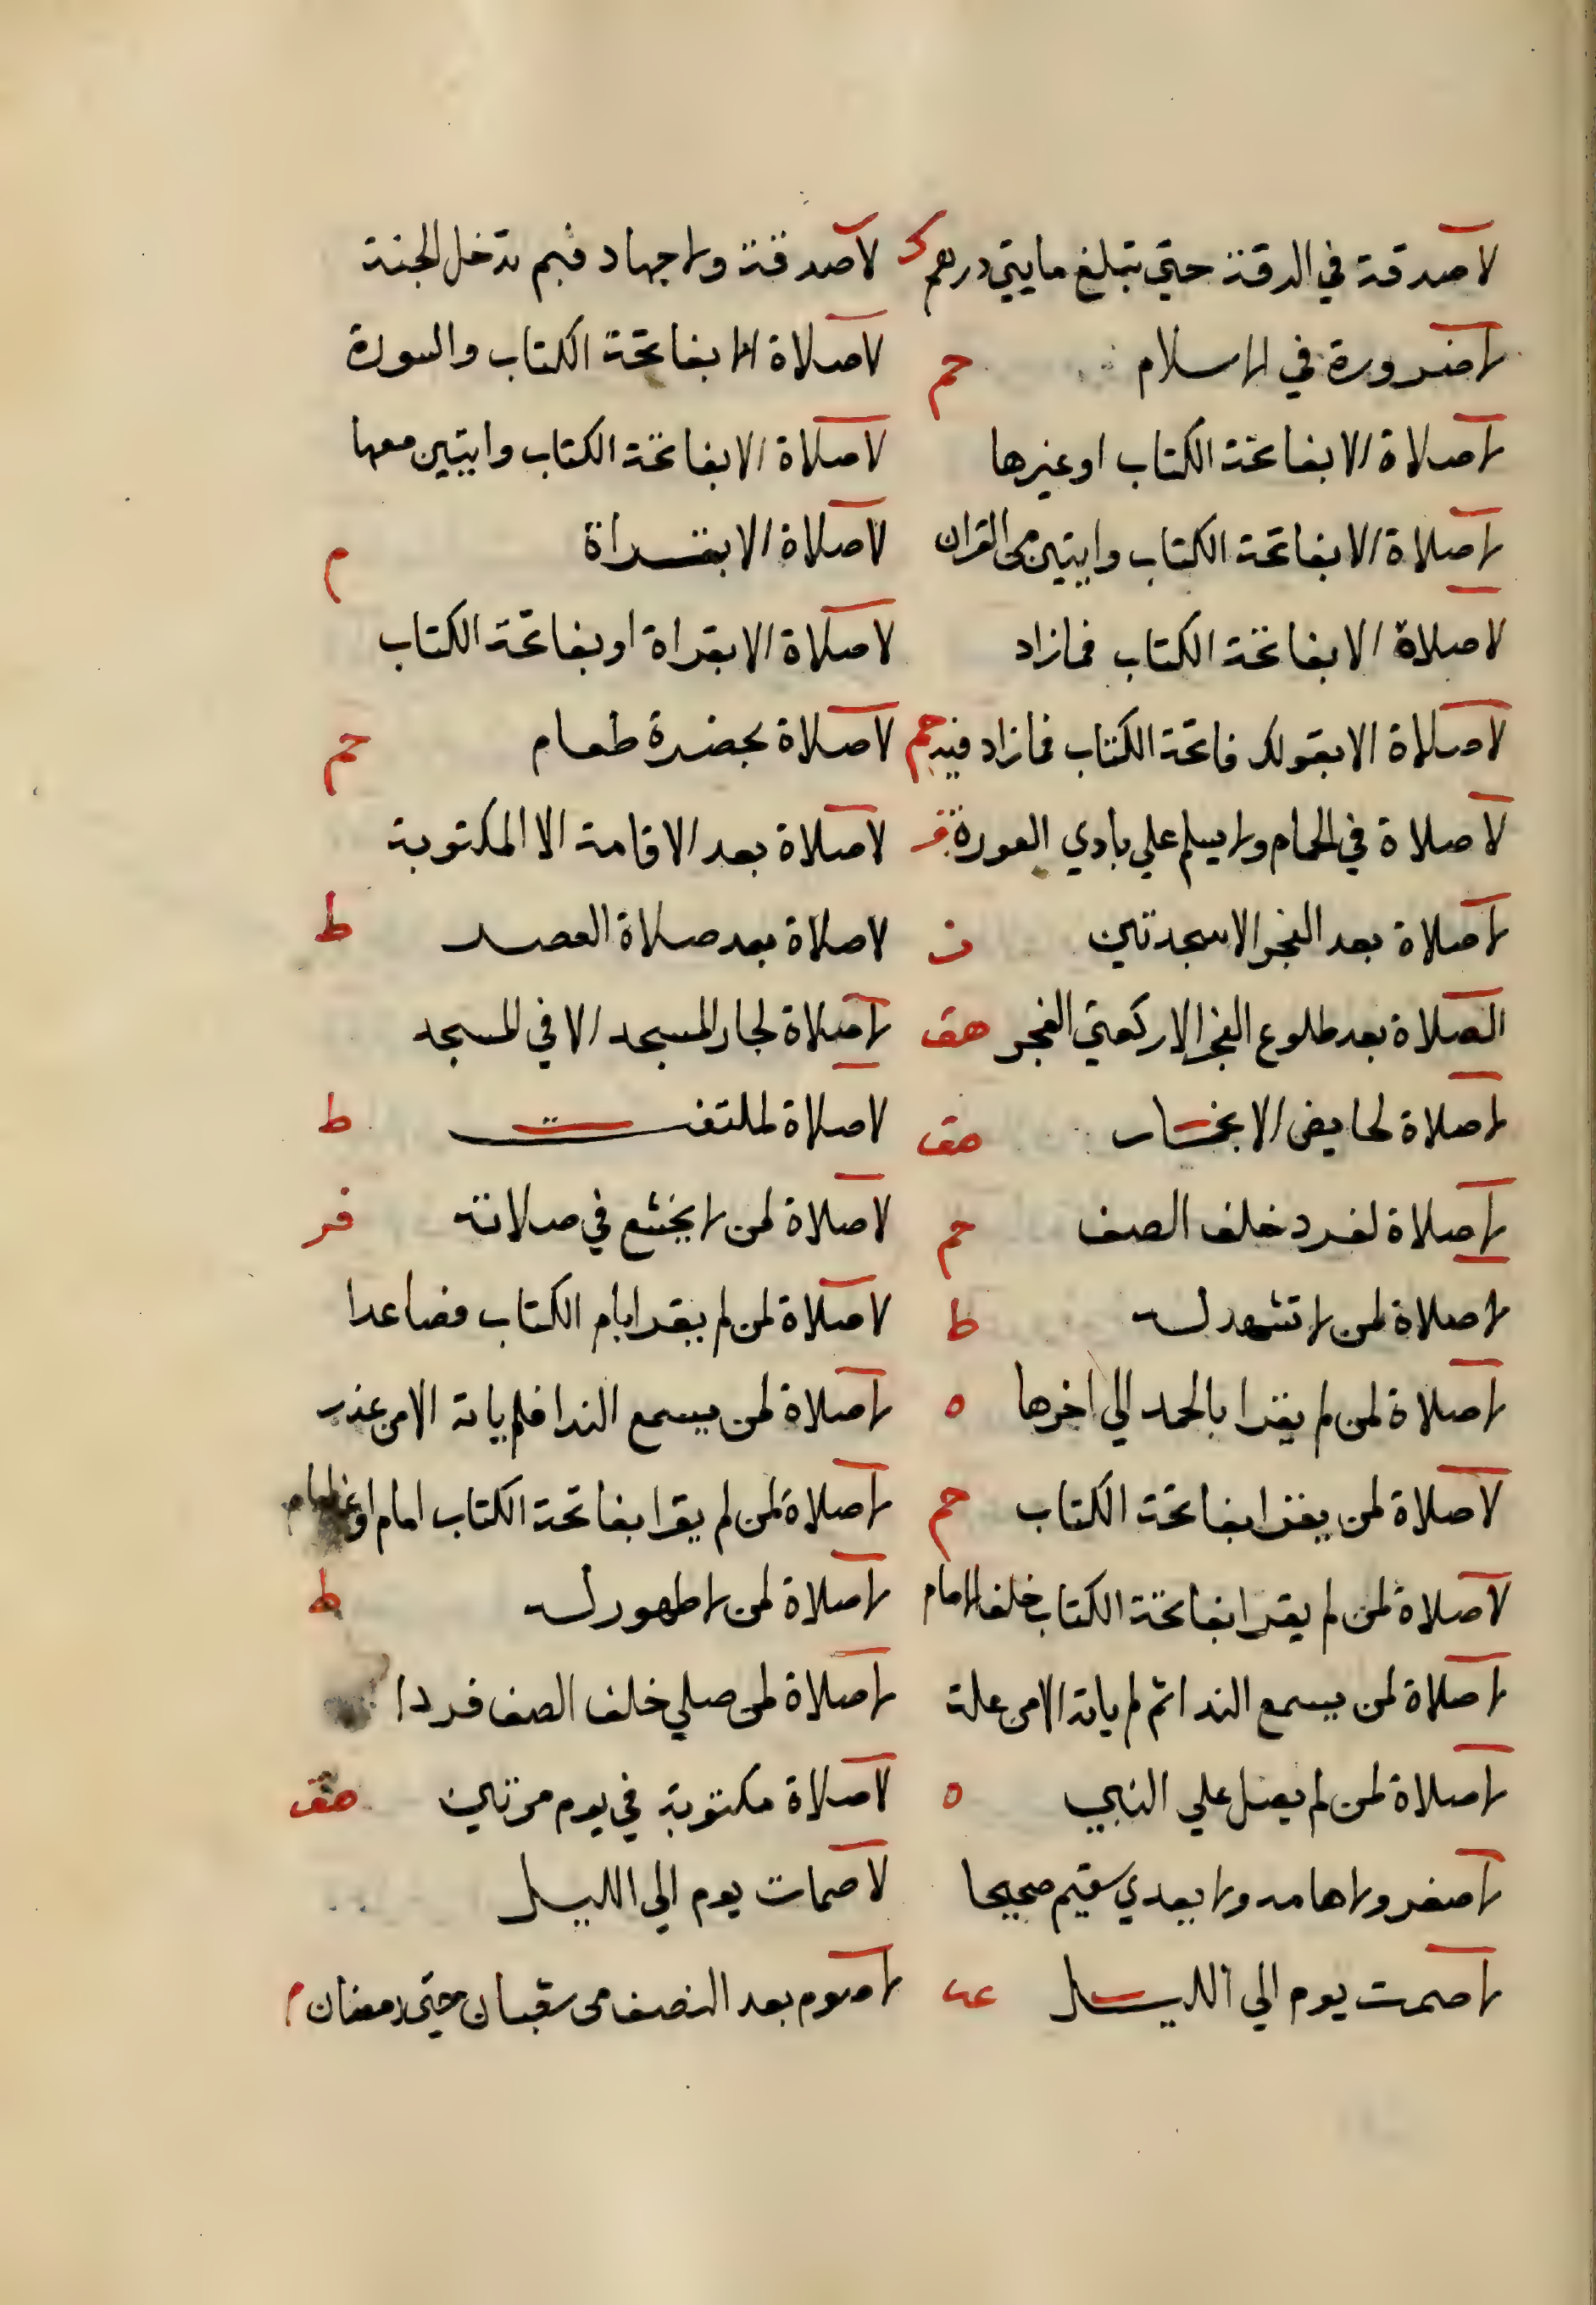 لا صدقة في الرقة حتي تبلغ مايتي درهم ك لا صدقة ولا جهاد فبم تدخل الجنة
لا ضرورة في الاسلام حم لا صلاة الا بفاتحة الكتاب والسورة
لا صلاة الا بفاتحة الكتاب او غيرها لا صلاة الا بفاتحة الكتاب وايتين معها
لا صلاة الا بفاتحة الكتاب وايتين من القران لا صلاة الا بقراة م
لا صلاة الا بفاتحة الكتاب فمازاد لا صلاة الا بقراة او بفاتحة الكتاب
لا صلاة الا بقولك فاتحة الكتاب فمازاد فيه حم لا صلاة بحضرة طعام حم
لا صلاة في الحمام ولا يسلم علي بادي العورة فر لا صلاة بعد الاقامة الا المكتوبة
لا صلاة بعد الفجر الا سجدتين ت لا صلاة بعد صلاة العصر ط
لا صلاة بعد طلوع الفجر الا ركعتي الفجر هق لا صلاة لجار المسجد الا في المسجد
لا صلاة لحايض الا بخمار هق لا صلاة لملتفت ط
لا صلاة لفرد خلف الصف حم لا صلاة لمن لا يخشع في صلاته فر
لا صلاة لمن لا تشهد له ط لا صلاة لمن لم يقرا بام الكتاب فصاعدا
لا صلاة لمن لم يقرا بالحمد الي اخرها ه لا صلاة لمن يسمع الندا فلم ياته الا من عذر
لا صلاة لمن يقرا بفاتحة الكتاب حم لا صلاة لمن لم يقرا بفاتحة الكتاب امام او غير امام
لا صلاة لمن لم يقرا بفاتحة الكتاب خلف الامام لا صلاة لمن لا طهور له ط
لا صلاة لمن يسمع الندا ثم لم ياته الا من علة لا صلاة لمن صلي خلف الصف فردا
لا صلاة لمن لم يصل علي النبي ه لا صلاة مكتوبة في يوم مرتين هق
لا صفر ولا هامه ولا يعدي سقيم صحيحا لا صمات يوم الي الليل
لا صمت يوم الي الليل عب لا صوم بعد النصف من شعبان حتي رمضان م